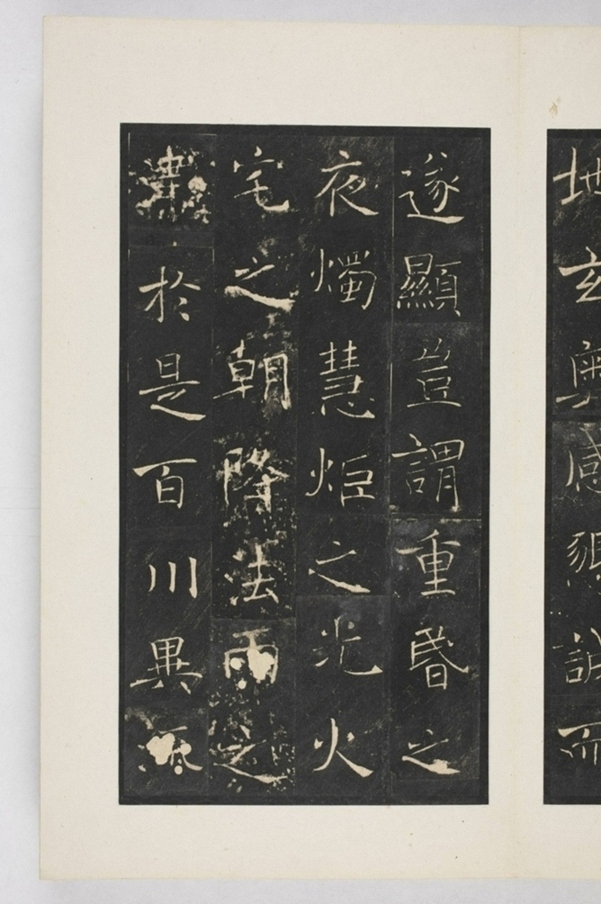 地玄奧感懇誠而
遂顯豈謂重昏之
夜燭慧炬之光火
宅之朝降法雨之
於是百川異流